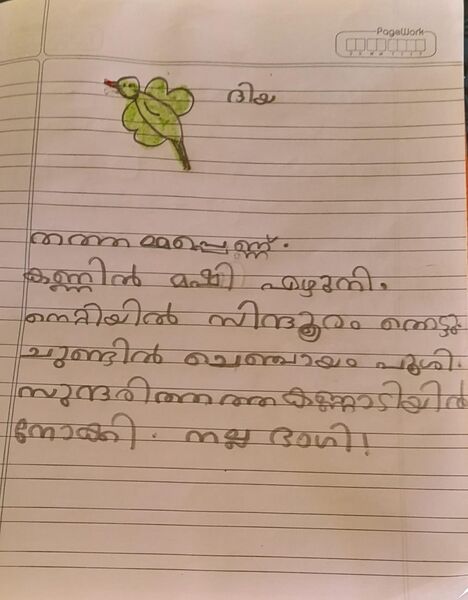 PageWork
ദിയ
തത്തമ്മപെണ്ണ്.
കണ്ണിൽ മഷി എഴുതി.
നെറ്റിയിൽ സിന്ദൂരം തൊട്ടു
ചുണ്ടിൽ ചെഞ്ചായം പൂശി.
സുന്ദരിത്തത്ത കണ്ണാടിയിൽ
നോക്കി. നല്ല ഭംഗി!